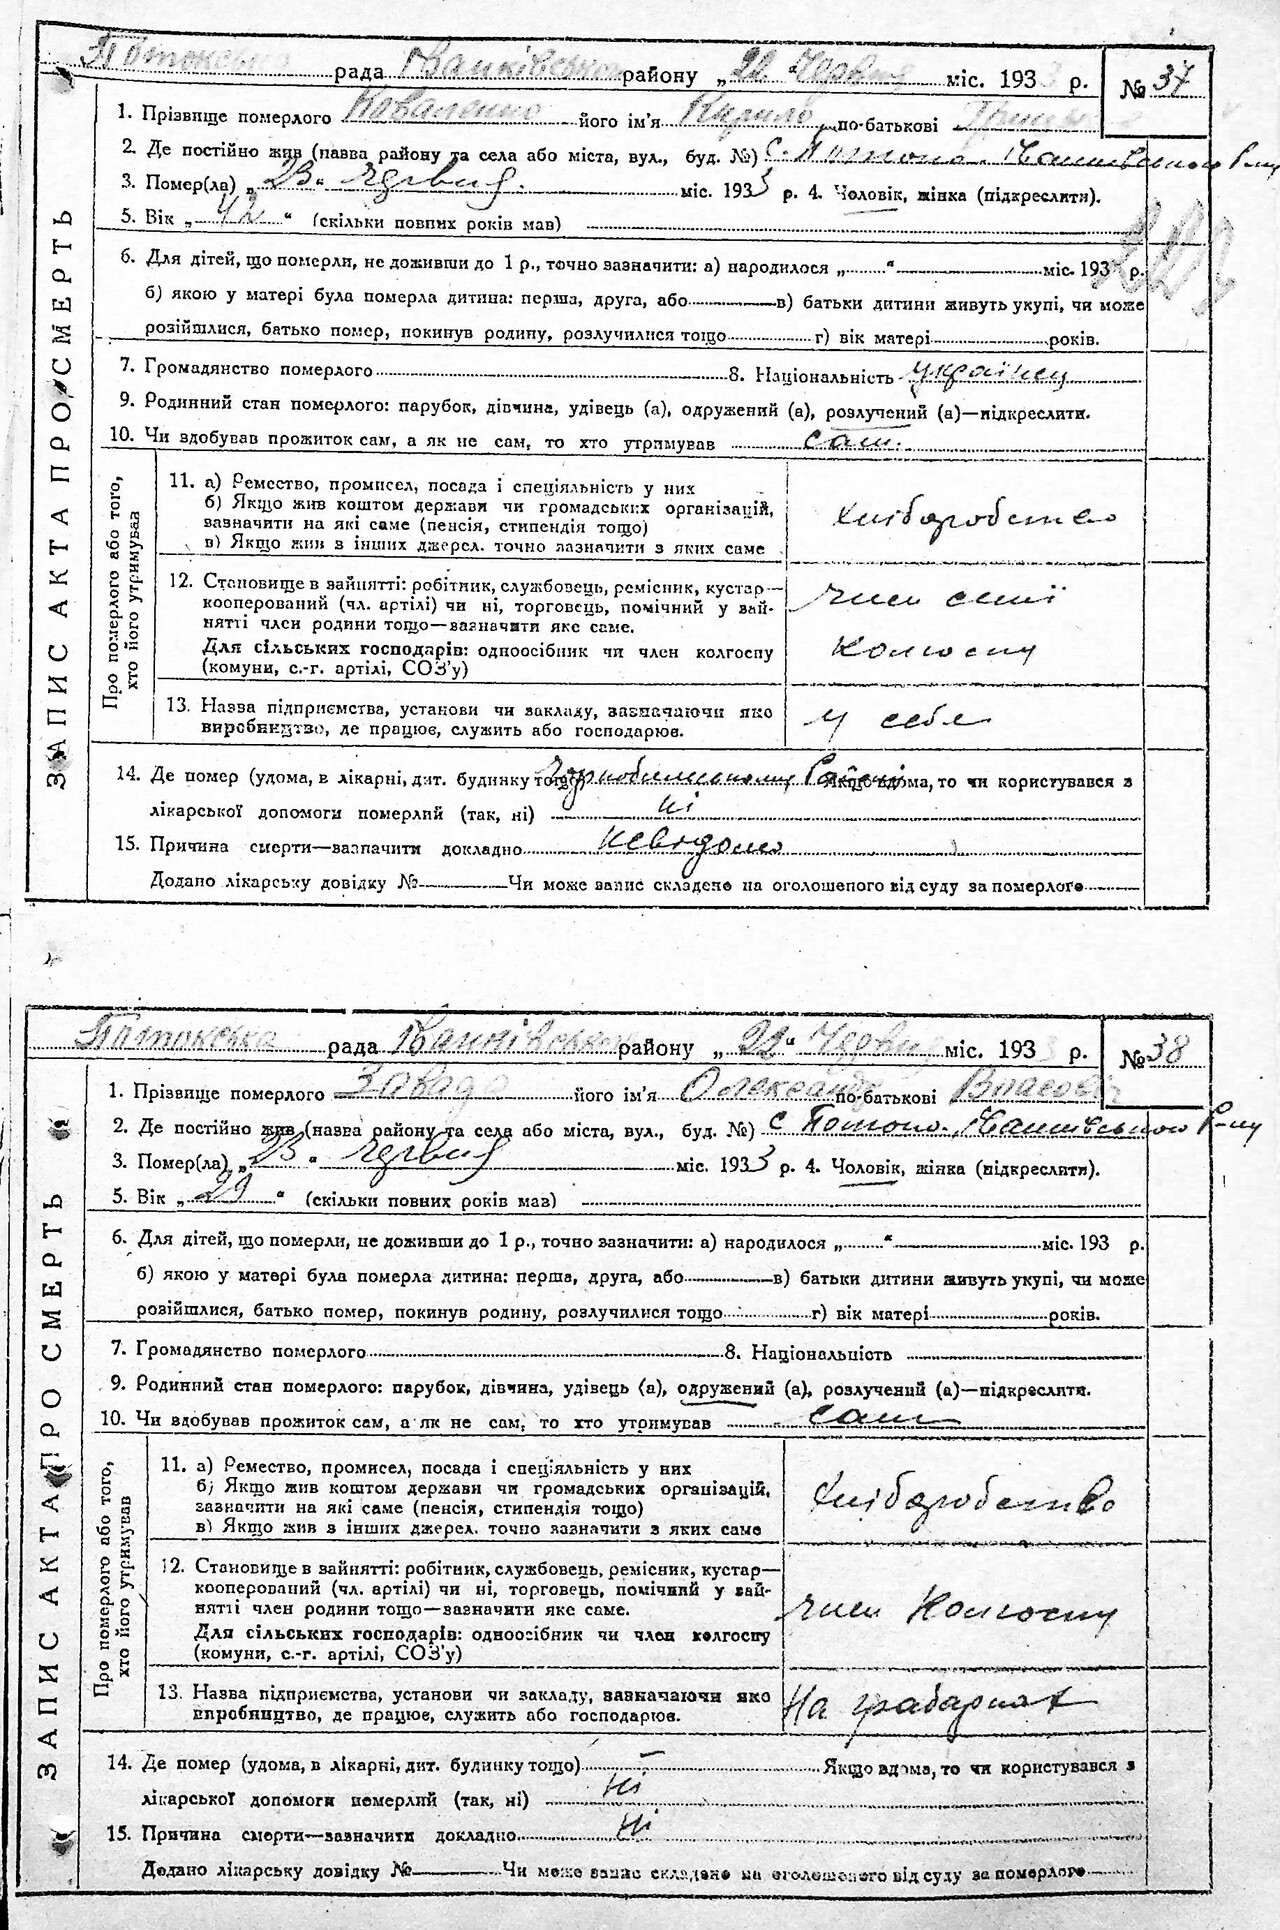 Потокська рада Канівського району „ 22 “ Червня міс. 1933 р. № 37
1. Прізвище померлого Коваленко його ім'я Кирило по-батькові
2. Де постійно жив (назва району та села або міста, вул., буд. №) с. Потоко. Канівського Р-ну
3. Помер(ла) „ 23 “ Червня міс. 1933 р. 4. Чоловік, жінка (підкреслити).
5. Вік „ 42 “ (скільки повних років мав)
6. Для дітей, що померли, не доживши до 1 р., точно зазначити: а) народилося „ “ міс. 193 р.
б) якою у матері була померла дитина: перша, друга, або в) батьки дитини живуть укупі, чи може
розійшлися, батько помер, покинув родину, розлучилися тощо г) вік матері років.
7. Громадянство померлого 8. Національність українец
9. Родинний стан померлого: парубок, дівчина, удівець (а), одружений (а), розлучений (а)—підкреслити.
10. Чи здобував прожиток сам, а як не сам, то хто утримував сам.
ЗАПИС АКТА ПРО СМЕРТЬ
Про померлого або того, хто його утримував
11. а) Ремество, промисел, посада і спеціяльність у них
б) Якщо жив коштом держави чи громадських організацій,
зазначити на які саме (пенсія, стипендія тощо)
в) Якщо жив з інших джерел. точно зазначити з яких саме
хліборобство
12. Становище в зайнятті: робітник, службовець, ремісник, кустар—
кооперований (чл. артілі) чи ні, торговець, помічний у зай-
нятті член родини тощо—зазначити яке саме.
Для сільських господарів: одноосібник чи член колгоспу
(комуни, с.-г. артілі, СОЗ'у)
член семї
колгоспу
13. Назва підприємства, установи чи закладу, зазначаючи яко
виробництво, де працює, служить або господарює.
у себе
14. Де помер (удома, в лікарні, дит. будинку тощо) Чорнобильському Районі Якщо вдома, то чи користувався з
лікарської допомоги померлий (так, ні) ні
15. Причина смерти—зазначити докладно невідомо
Додано лікарську довідку № Чи може запис складено на оголошеного від суду за померлого
Потокська рада Канівського району „ 22 “ Червня міс. 1933 р. № 38
1. Прізвище померлого Завада його ім'я Олександр по-батькові Власович
2. Де постійно жив (назва району та села або міста, вул., буд. №) с Потоко. Канівського Р-ну
3. Помер(ла) „ 23 “ Червня міс. 1933 р. 4. Чоловік, жінка (підкреслити).
5. Вік „ 29 “ (скільки повних років мав)
6. Для дітей, що померли, не доживши до 1 р., точно зазначити: а) народилося „ “ міс. 193 р.
б) якою у матері була померла дитина: перша, друга, або в) батьки дитини живуть укупі, чи може
розійшлися, батько помер, покинув родину, розлучилися тощо г) вік матері років.
7. Громадянство померлого 8. Національність
9. Родинний стан померлого: парубок, дівчина, удівець (а), одружений (а), розлучений (а)—підкреслити.
10. Чи здобував прожиток сам, а як не сам, то хто утримував сам
ЗАПИС АКТА ПРО СМЕРТЬ
Про померлого або того, хто його утримував
11. а) Ремество, промисел, посада і спеціяльність у них
б) Якщо жив коштом держави чи громадських організацій,
зазначити на які саме (пенсія, стипендія тощо)
в) Якщо жив з інших джерел. точно зазначити з яких саме
хліборобство
12. Становище в зайнятті: робітник, службовець, ремісник, кустар—
кооперований (чл. артілі) чи ні, торговець, помічний у зай-
нятті член родини тощо—зазначити яке саме.
Для сільських господарів: одноосібник чи член колгоспу
(комуни, с.-г. артілі, СОЗ'у)
член колгоспу
13. Назва підприємства, установи чи закладу, зазначаючи яко
виробництво, де працює, служить або господарює.
на грабарках
14. Де помер (удома, в лікарні, дит. будинку тощо) – Якщо вдома, то чи користувався з
лікарської допомоги померлий (так, ні) ні
15. Причина смерти—зазначити докладно ні
Додано лікарську довідку № Чи може запис складено на оголошеного від суду за померлого